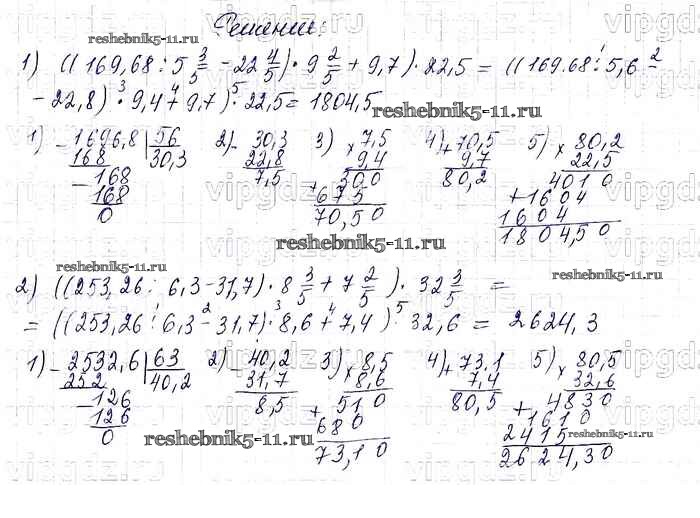 Решение:
reshebnik5-11.ru
1) ((169,68 : 5 3/5 - 22 4/5) · 9 2/5 + 9,7) · 22,5 = ((169.68 : 5,6 -
- 22,8) · 9,4 + 9,7) · 22,5 = 1804,5
reshebnik5-11.ru
1) - 1696,8 | 56 2) - 30,3 3) × 7,5 4) + 70,5 5) × 80,2
168 30,3 22,8 9,4 9,7 22,5
- 168 7,5 + 300 80,2 4010
168 675 + 1604
0 70,50 1604
1804,50
reshebnik5-11.ru
reshebnik5-11.ru reshebnik5-11.ru
2) ((253,26 : 6,3 - 31,7) · 8 3/5 + 7 2/5) · 32 3/5 =
= ((253,26 : 6,3 - 31,7) · 8,6 + 7,4) · 32,6 = 2624,3
1) - 2532,6 | 63 2) - 40,2 3) × 8,5 4) + 73,1 5) × 80,5
252 40,2 31,7 8,6 7,4 32,6
- 126 8,5 + 510 80,5 + 4830
126 680 1610
0 73,10 2415
2624,30
reshebnik5-11.ru
reshebnik5-11.ru
vipgdz.ru